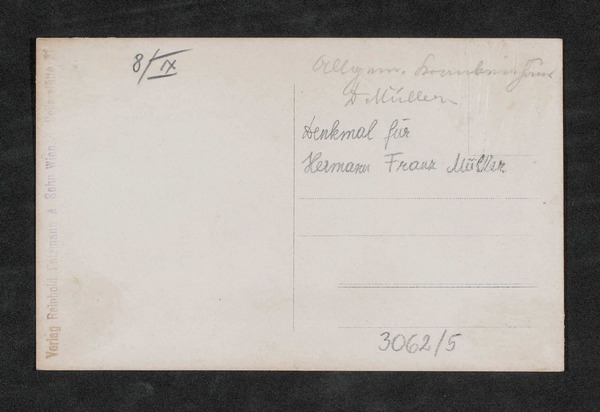 8/IX
Allgem. Krankenhaus
D Müller
Denkmal für
Hermann Franz Müller
3062/5
Verlag Reinhold Entzmann & Sohn Wien